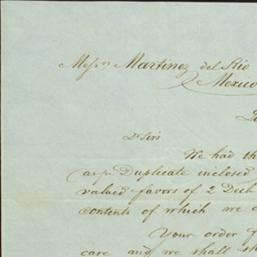 Messrs Martinez del Rio
Mexico
Dr Sirs
We had th
as p. Duplicate inclosed
valued favors of 2 Dech
contents of which we a
Your order f
care and we shall sh